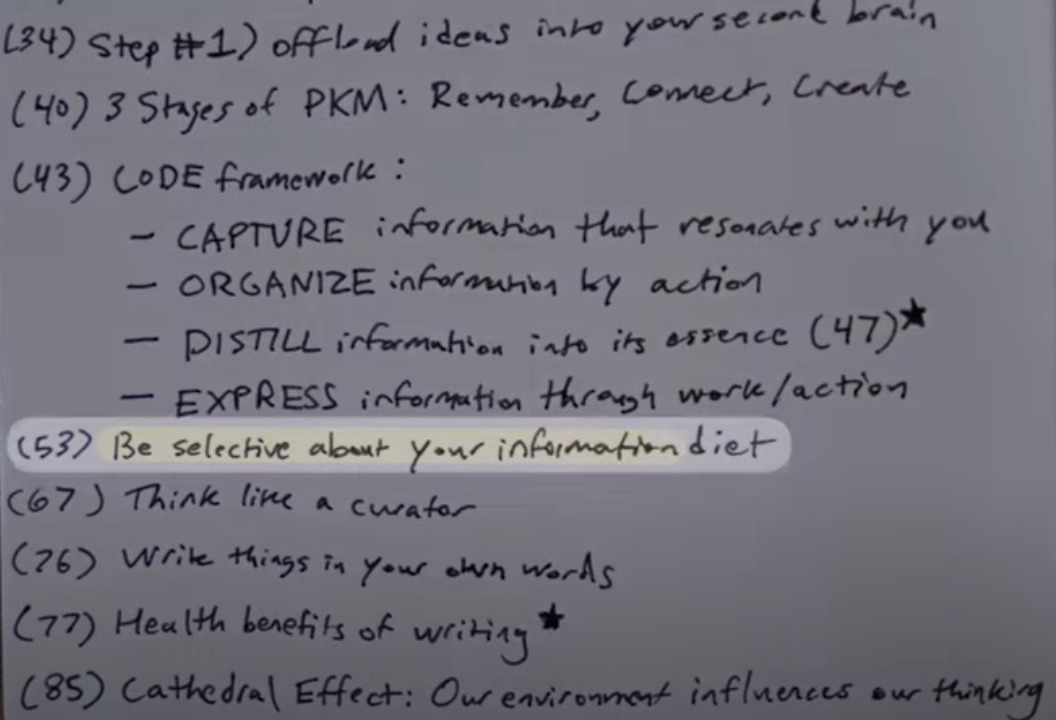 (34) Step #1) offload ideas into your second brain
(40) 3 Stages of PKM: Remember, Connect, Create
(43) CODE framework:
– CAPTURE information that resonates with you
– ORGANIZE information by action
– DISTILL information into its essence (47)★
– EXPRESS information through work/action
(53) Be selective about your information diet
(67) Think like a curator
(76) Write things in your own words
(77) Health benefits of writing ★
(85) Cathedral Effect: Our environment influences our thinking